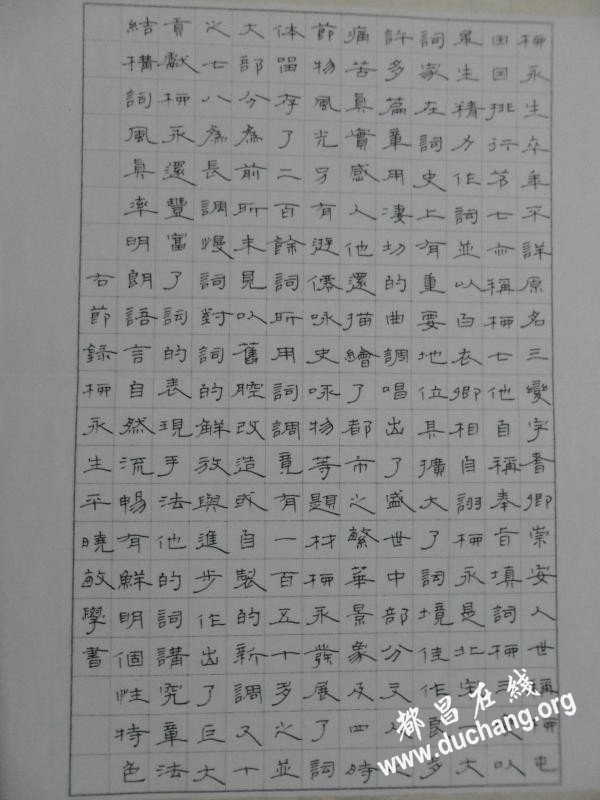 柳永生卒年不詳原名三變字耆卿崇安人世稱柳屯
田因排行苐七亦稱柳七他自稱奉旨填詞柳三變以
畢生精力作詞並以白衣卿相自詡柳永是北宋大
詞家在詞史上有重要地位其擴大了詞境佳作良多
許多篇章用淒切的曲調唱出了盛世中部分文人
痛苦真實感人他還描繪了都市之繁華景象及四時
節物風光另有遊僊咏史咏物等題材柳永發展了詞
体留存了二百餘詞所用詞調竟有一百五十多之並
大部分為前所未見以舊腔改造或自製的新調又十
之七八為長調慢詞對詞的解放與進步作出了巨大
貢獻柳永還豐富了詞的表現手法他的詞講究章法
結構詞風真率明朗語言自然流暢有鮮明個性特色
右節錄柳永生平曉敏學書
都昌在线
www.duchang.org